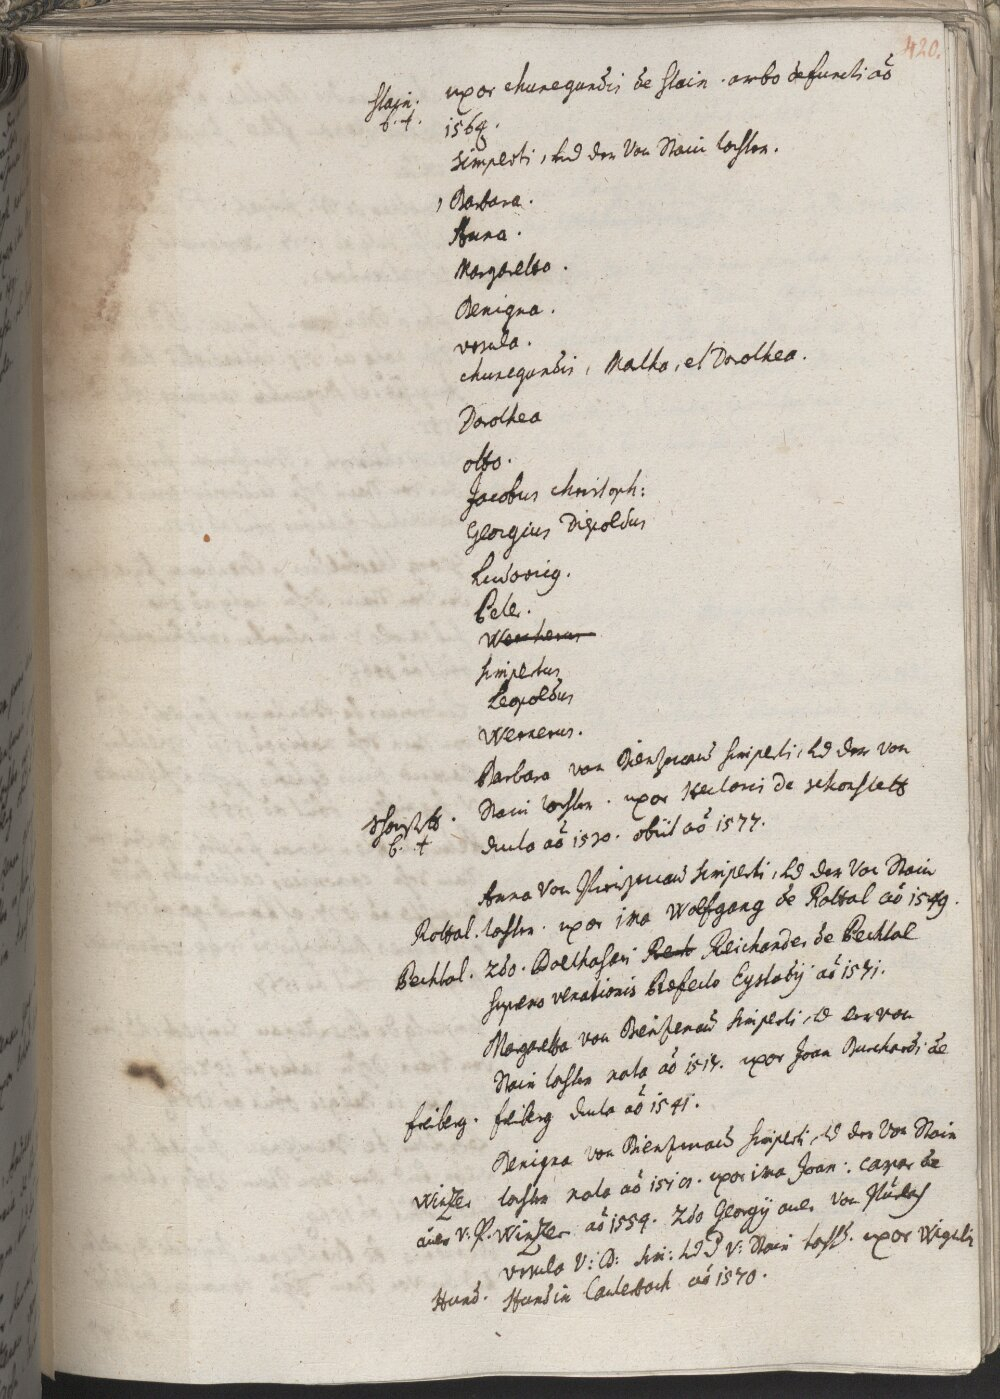 420.
Stain. uxor chunegundis de Stain. ambo defuncti aõ
b. t. 1564.
Simperti, und der Von Stain tochter.
, Barbara.
Anna.
Margaretha.
Benigna.
Vrsula.
chunegundis, Martha, et Dorothea.
Dorothea
otto.
Jacobus christoph:
Georgius Diepoldus
Ludowig.
Peter.
Wernherus
Simpertus
Leopoldus
Wernerus.
Barbara von Bienzenau Simperti, vd der von
Stain tochter. uxor Hectoris de schonstett
b. t ducta aõ 1530. obiit aõ 1577.
Anna Von Bienzenau Simperti, vd der Von Stain
Rottal. tochter. uxor ima Wolfgang de Rottal aõ 1549.
Bechtal. 2do. Balthasari Rech Reichander de Bechtal
Supremo venationis Praefecto Eystadij aõ 1571.
Margaretha von Bienzenau Simperti, vd der von
Stain tochter nata aõ 1514. uxor Joan Burchardi de
freiberg. freiberg ducta aõ 1541.
Benigna von Bienzenau Simperti, vd der Von Stain
Winzer tochter nata aõ 1510. uxor ima Joan: Caspar de
auer v. P. Winzer aõ 1559. 2do Georgij auer von
Vrsula V: B: Sim: vd D V: Stain tocht. uxor Wigulei
Hund. Hund in Lauterbach aõ 1570.